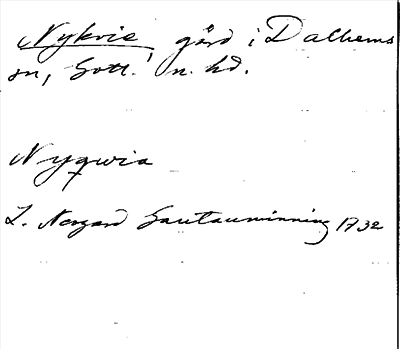 Nykvie gård i Dalhems
sn, Gotl. n. hd.
Nyqwia
L. Norgard Gautauminning 1732